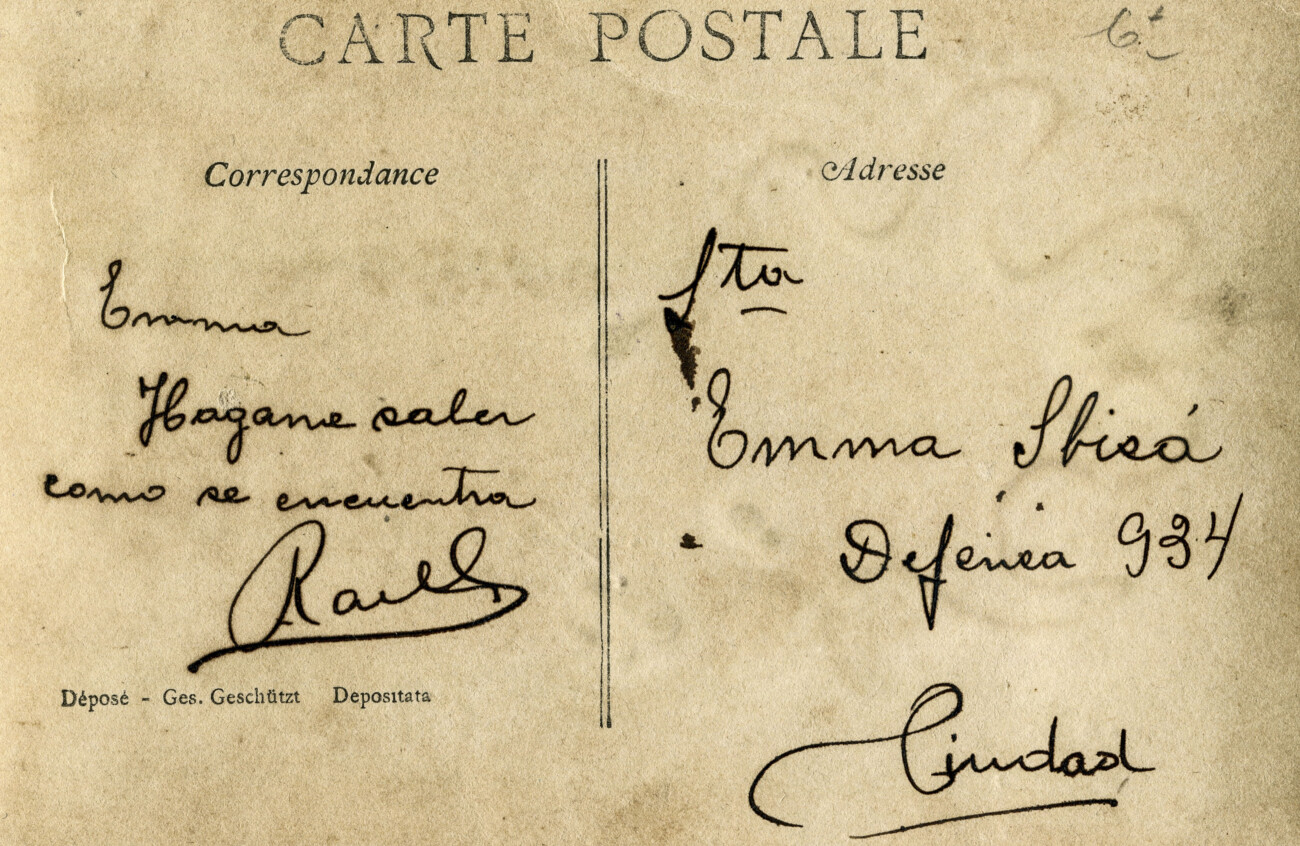 CARTE POSTALE
Correspondance
Emma
Hagame saber
como se encuentra
Raul
Déposé - Ges. Geschützt Depositata
Adresse
Sta
Emma Sbisá
Defensa 934
Ciudad